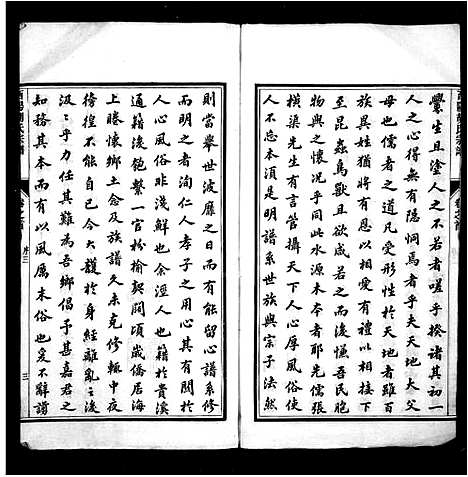 釁生且塗人之不若者嗟乎揆諸其初一
人之心得毋有隱恫焉者乎夫天地大父
母也儒者之道凡受形性於天地者雖百
族異姓人皆欲相愛有禮以相接下
至昆蟲動息且欲咸若是而後慊吾民胞
物與之懷況乎同此水源木本者耶先儒張
橫渠亦本須是明譜系世族與宗子法然
則當舉世波靡之日而能留心譜系修
而明之者洵仁人孝子之用心其有裨於
人心風俗非淺鮮也余涇人也籍於貴溪
通籍後匏繫一官枌榆契闊頃歲僑居海
上睠懷鄉土之念及族譜久未克修輒中夜
徬徨不能自已今大馥於身經離亂之後
汲汲乎力任其難為吾鄉倡予甚嘉君之
知務其本而有以風厲末俗也爰不辭譾
卷之首
序三
三